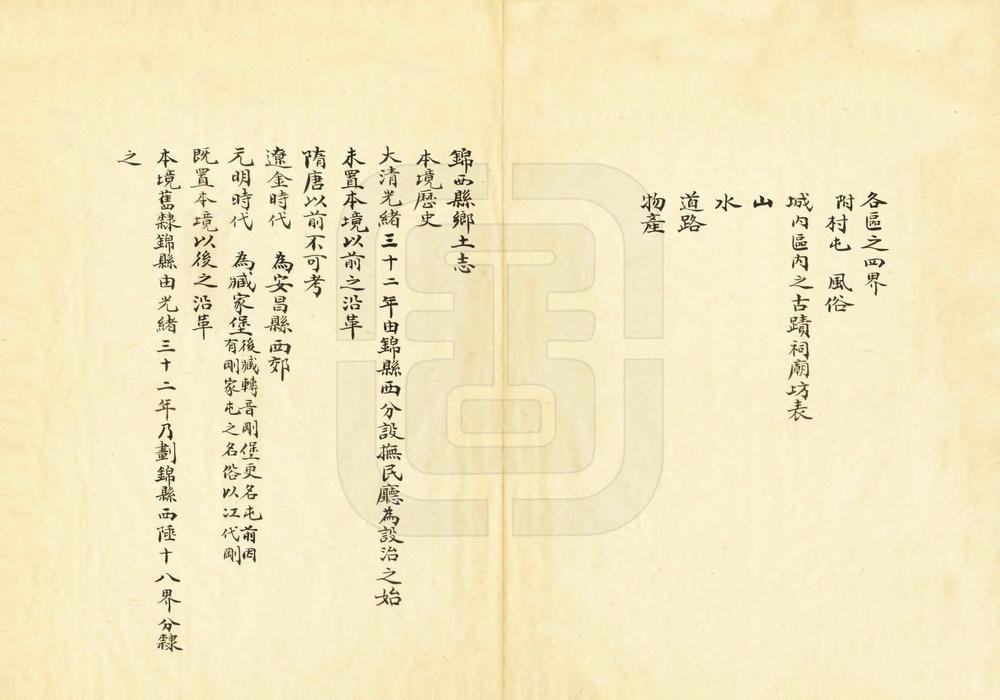 各區之四界
附村屯　風俗
城內區內之古蹟祠廟坊表
山
水
道路
物產
錦西縣鄉土志
本境歷史
大清光緒三十二年由錦縣西分設撫民廳為設治之始
未置本境以前之沿革
隋唐以前不可考
遼金時代　為安昌縣西郊
元明時代　為臧家堡後臧轉音剛堡更名屯前因
有剛家屯之名俗以江代剛
既置本境以後之沿革
本境舊隸錦縣由光緒三十二年乃劃錦縣西陲十八界分隸
之